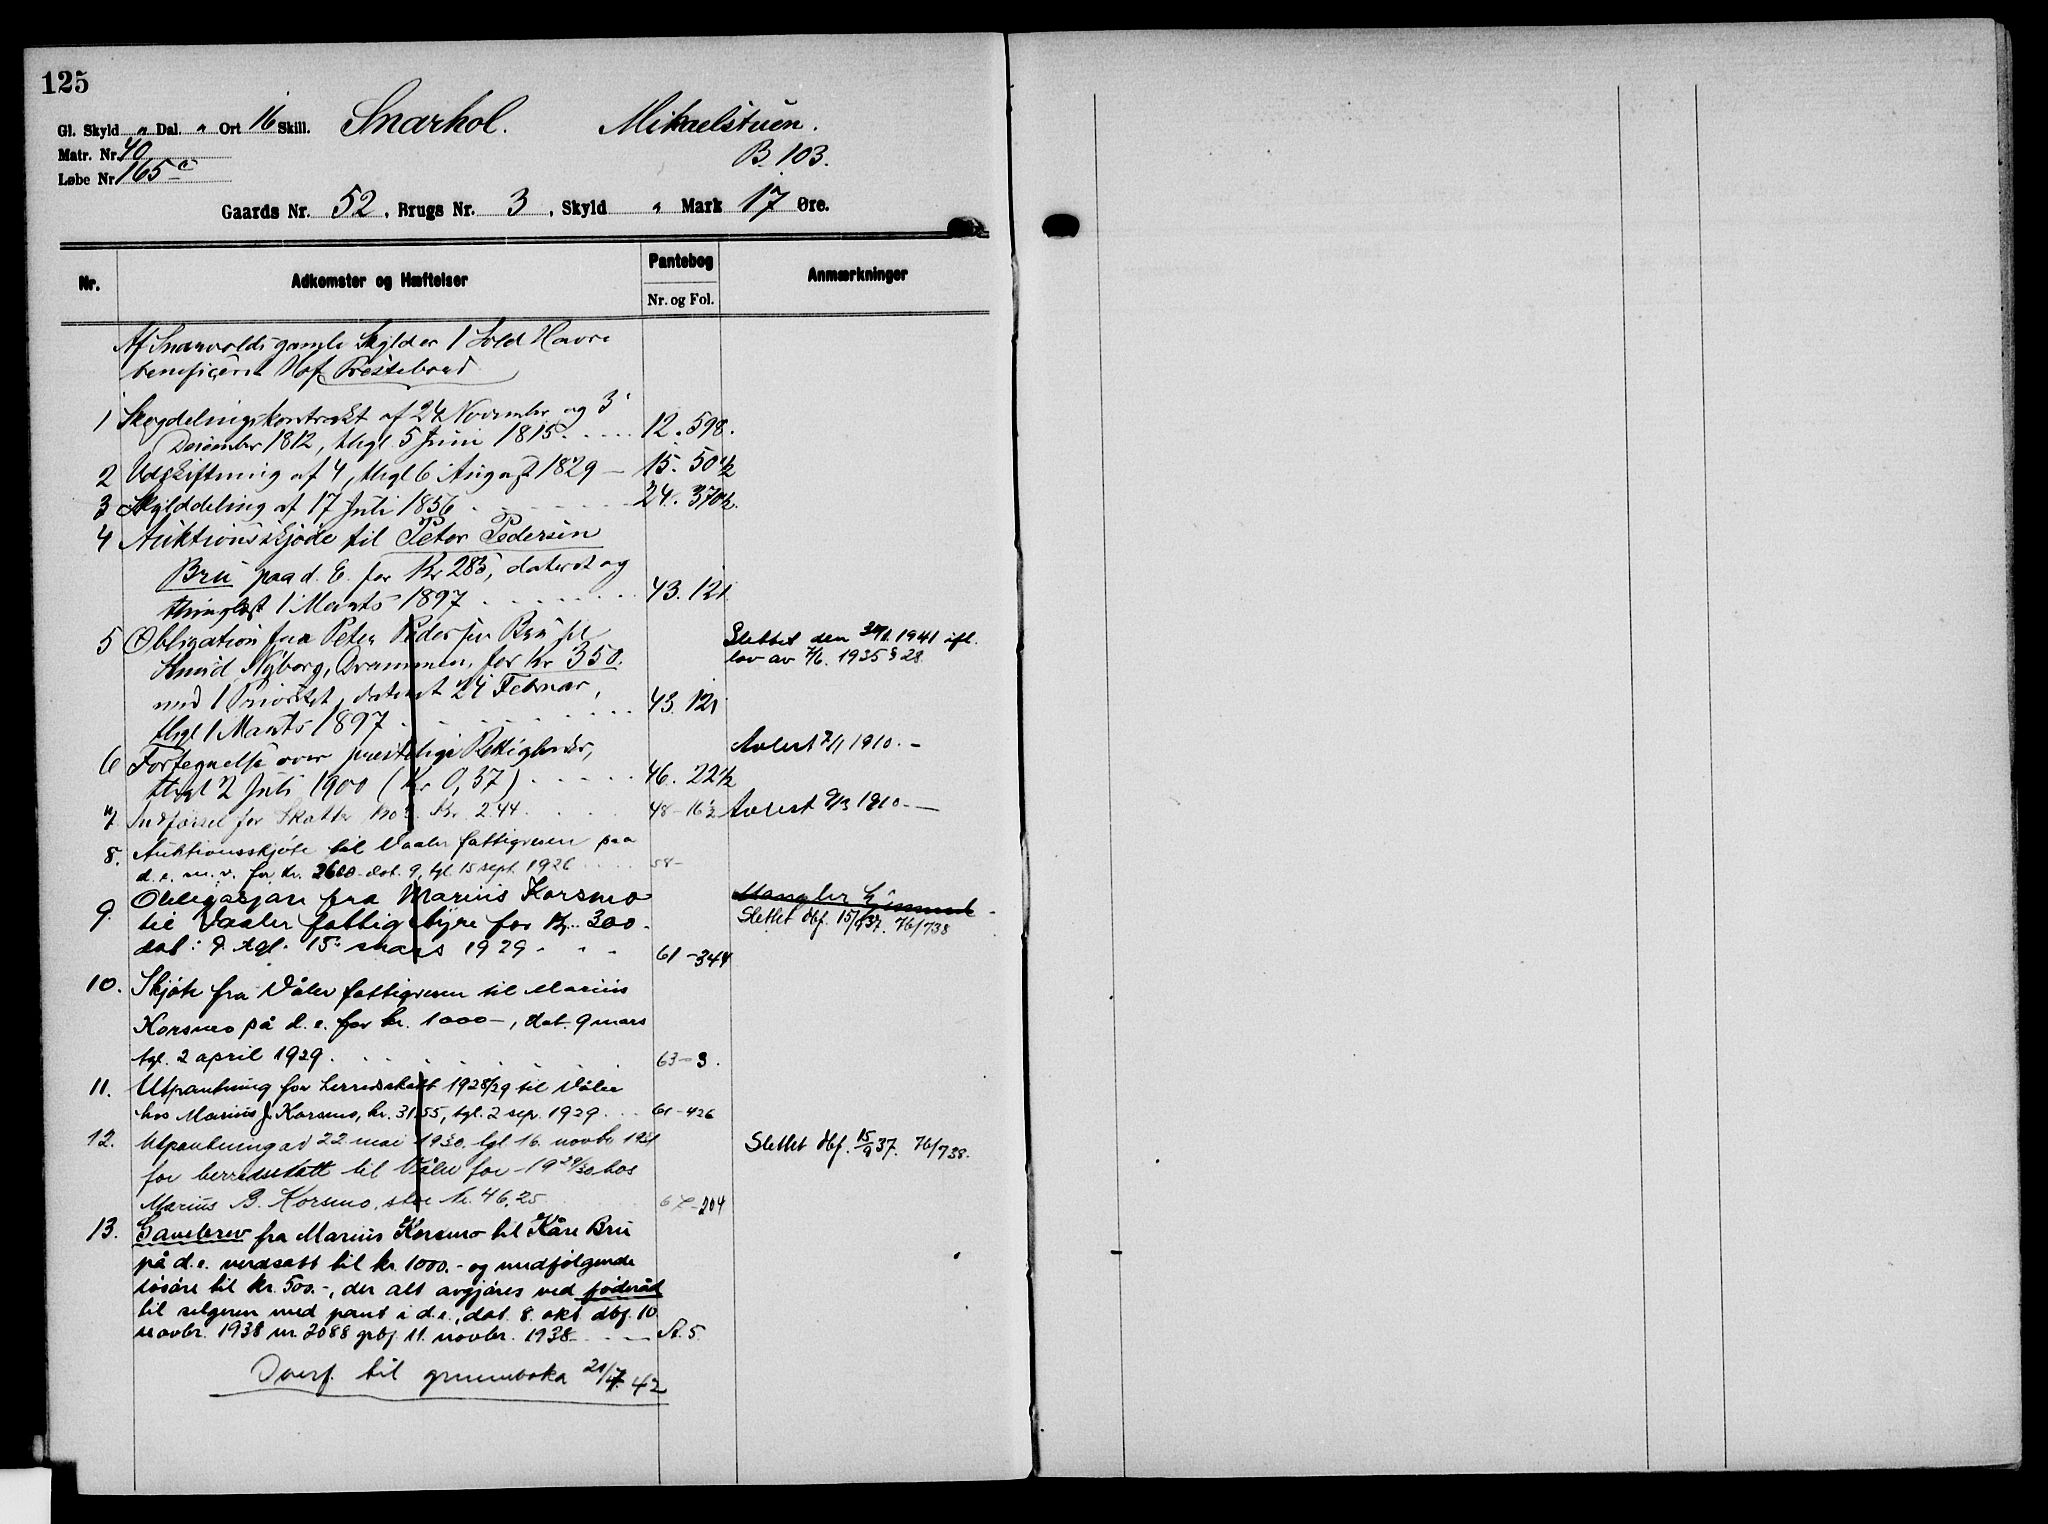 125
Gl. Skyld „ Dal. „ Ort 16 Skill. Snarhol. Mikaelstuen.
Matr. Nr. 40 B. 103.
Løbe Nr. 165 c
Gaards Nr. 52, Brugs Nr. 3, Skyld „ Mark 17 Øre.
Nr. Adkomster og Hæftelser Pantebog Nr. og Fol. Anmærkninger
Af Snarvolds gamle Skyld er 1 Sold Havre
beneficeret af Prestebord
1 Skyldelingskontrakt af 24 November og 3
December 1812, thgl. 5 Juni 1815 12. 598.
2 Udskiftning af 4, thgl 6 August 1829 – 15. 50½
3 Skylddeling af 17 Juli 1856 24. 370½
4 Auktionsskjøde til Peter Pedersen
Bru paa d. E. for Kr 285, dateret og
thinglæst 1 Marts 1897 43. 121
5 Obligation fra Peter Pedersen Bru til
Nyborg, Drammen, for Kr 350. Slettet den 1941 ifl.
med 1 Prioritet, dateret 24 Februar, lov av 7/6. 1935 § 28.
thgl 1 Marts 1897 43. 121
6 Fortegnelse over prestelige Rettigheder, Avlest 7/1 1910. –
thgl 2 Juli 1900 (Kr 0,37) 46. 22½
7. Indførsel for Skatter Kr. 2.44 48–16½ Avlest 9/3 1910 –
8. Auktionsskjøte til Vaaler fattigvesen paa
d. e. m. v. for kr. 2600 dat. 9, tgl. 15 sept. 1926 58–
9. Obligasjon fra Marius Korsmo Mangler
til Vaaler fattigstyre for Kr. 300. Slettet dbf. 15/9 37. 76/738
dat: 9. tgl. 15: mars 1929 61–344
10. Skjøte fra Våler fattigvesen til Marius
Korsmo på d. e. for kr. 1000–, dat. 9 mars
tgl. 2 april 1929. 63–3.
11. Utpantning for herredsskatt 1928/29 til Våler
hos Marius J. Korsmo, kr. 31.55, tgl. 2 sep. 1929. 61–426
12. Utpantning av 22. mai 1930. tgl. 16. novbr 1931 Slettet dbf. 15/9 37. 76/738.
for herredsskatt til Våler for 1929/30 hos
Marius B. Korsmo, stor kr. 46,25 –204
13. Gavebrev fra Marius Korsmo til Kåre Bru
på d.e. verdsatt til kr. 1000.- og medfølgende
løsøre til kr. 500.-, der alt avgjøres ved føderåd
til selgeren med pant i d.e., dat. 8. okt dbf. 10
novbr. 1938 nr. 2088 gbf 11. novbr. 1938 – – – A. 5.
Overf. til grunnboka 21/7. 42